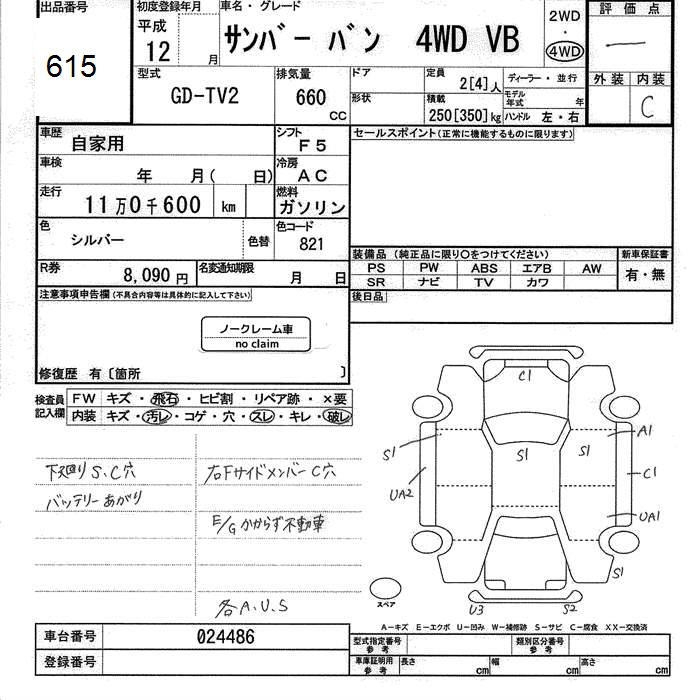 出品番号
615
初度登録年月
平成
12 年 月
車名・グレード
サンバー バン 4WD VB
2WD
・
4WD
評価点
外装 内装
C
型式
GD-TV2
排気量
660 CC
ドア
形状
定員
2[4]人
積載
250[350]kg
ディーラー・並行
モデル年式 年
ハンドル 左・右
車歴
自家用
シフト
F5
車検
年 月( 日)
冷房
AC
走行
11万0千600 km
燃料
ガソリン
色
シルバー
色替
色コード
821
R券
8,090円
名変通知期限
月 日
セールスポイント(正常に機能するものに限ります)
装備品 (純正品に限り〇をつけてください)
PS PW ABS エアB AW
SR ナビ TV カワ
新車保証書
有・無
後日品
注意事項申告欄(不具合内容等は具体的に記入して下さい)
ノークレーム車
no claim
修復歴 有〔箇所 〕
検査員
記入欄
FW キズ・飛石・ヒビ割・リペア跡・×要
内装 キズ・汚レ・コゲ・穴・スレ・キレ・破レ
下廻りS、C穴
バッテリーあがり
右Fサイドメンバー C穴
E/Gかからず不動車
各A、U、S
C1
S1
S1
S1
A1
UA2
C1
UA1
S1
U3
S2
スペア
A－キズ E－エクボ U－凹み W－補修跡 S－サビ C－腐食 XX－交換済
車台番号
024486
登録番号
型式指定番号
参考
類別区分番号
参考
車庫証明用
参考
長さ cm
幅 cm
高さ cm